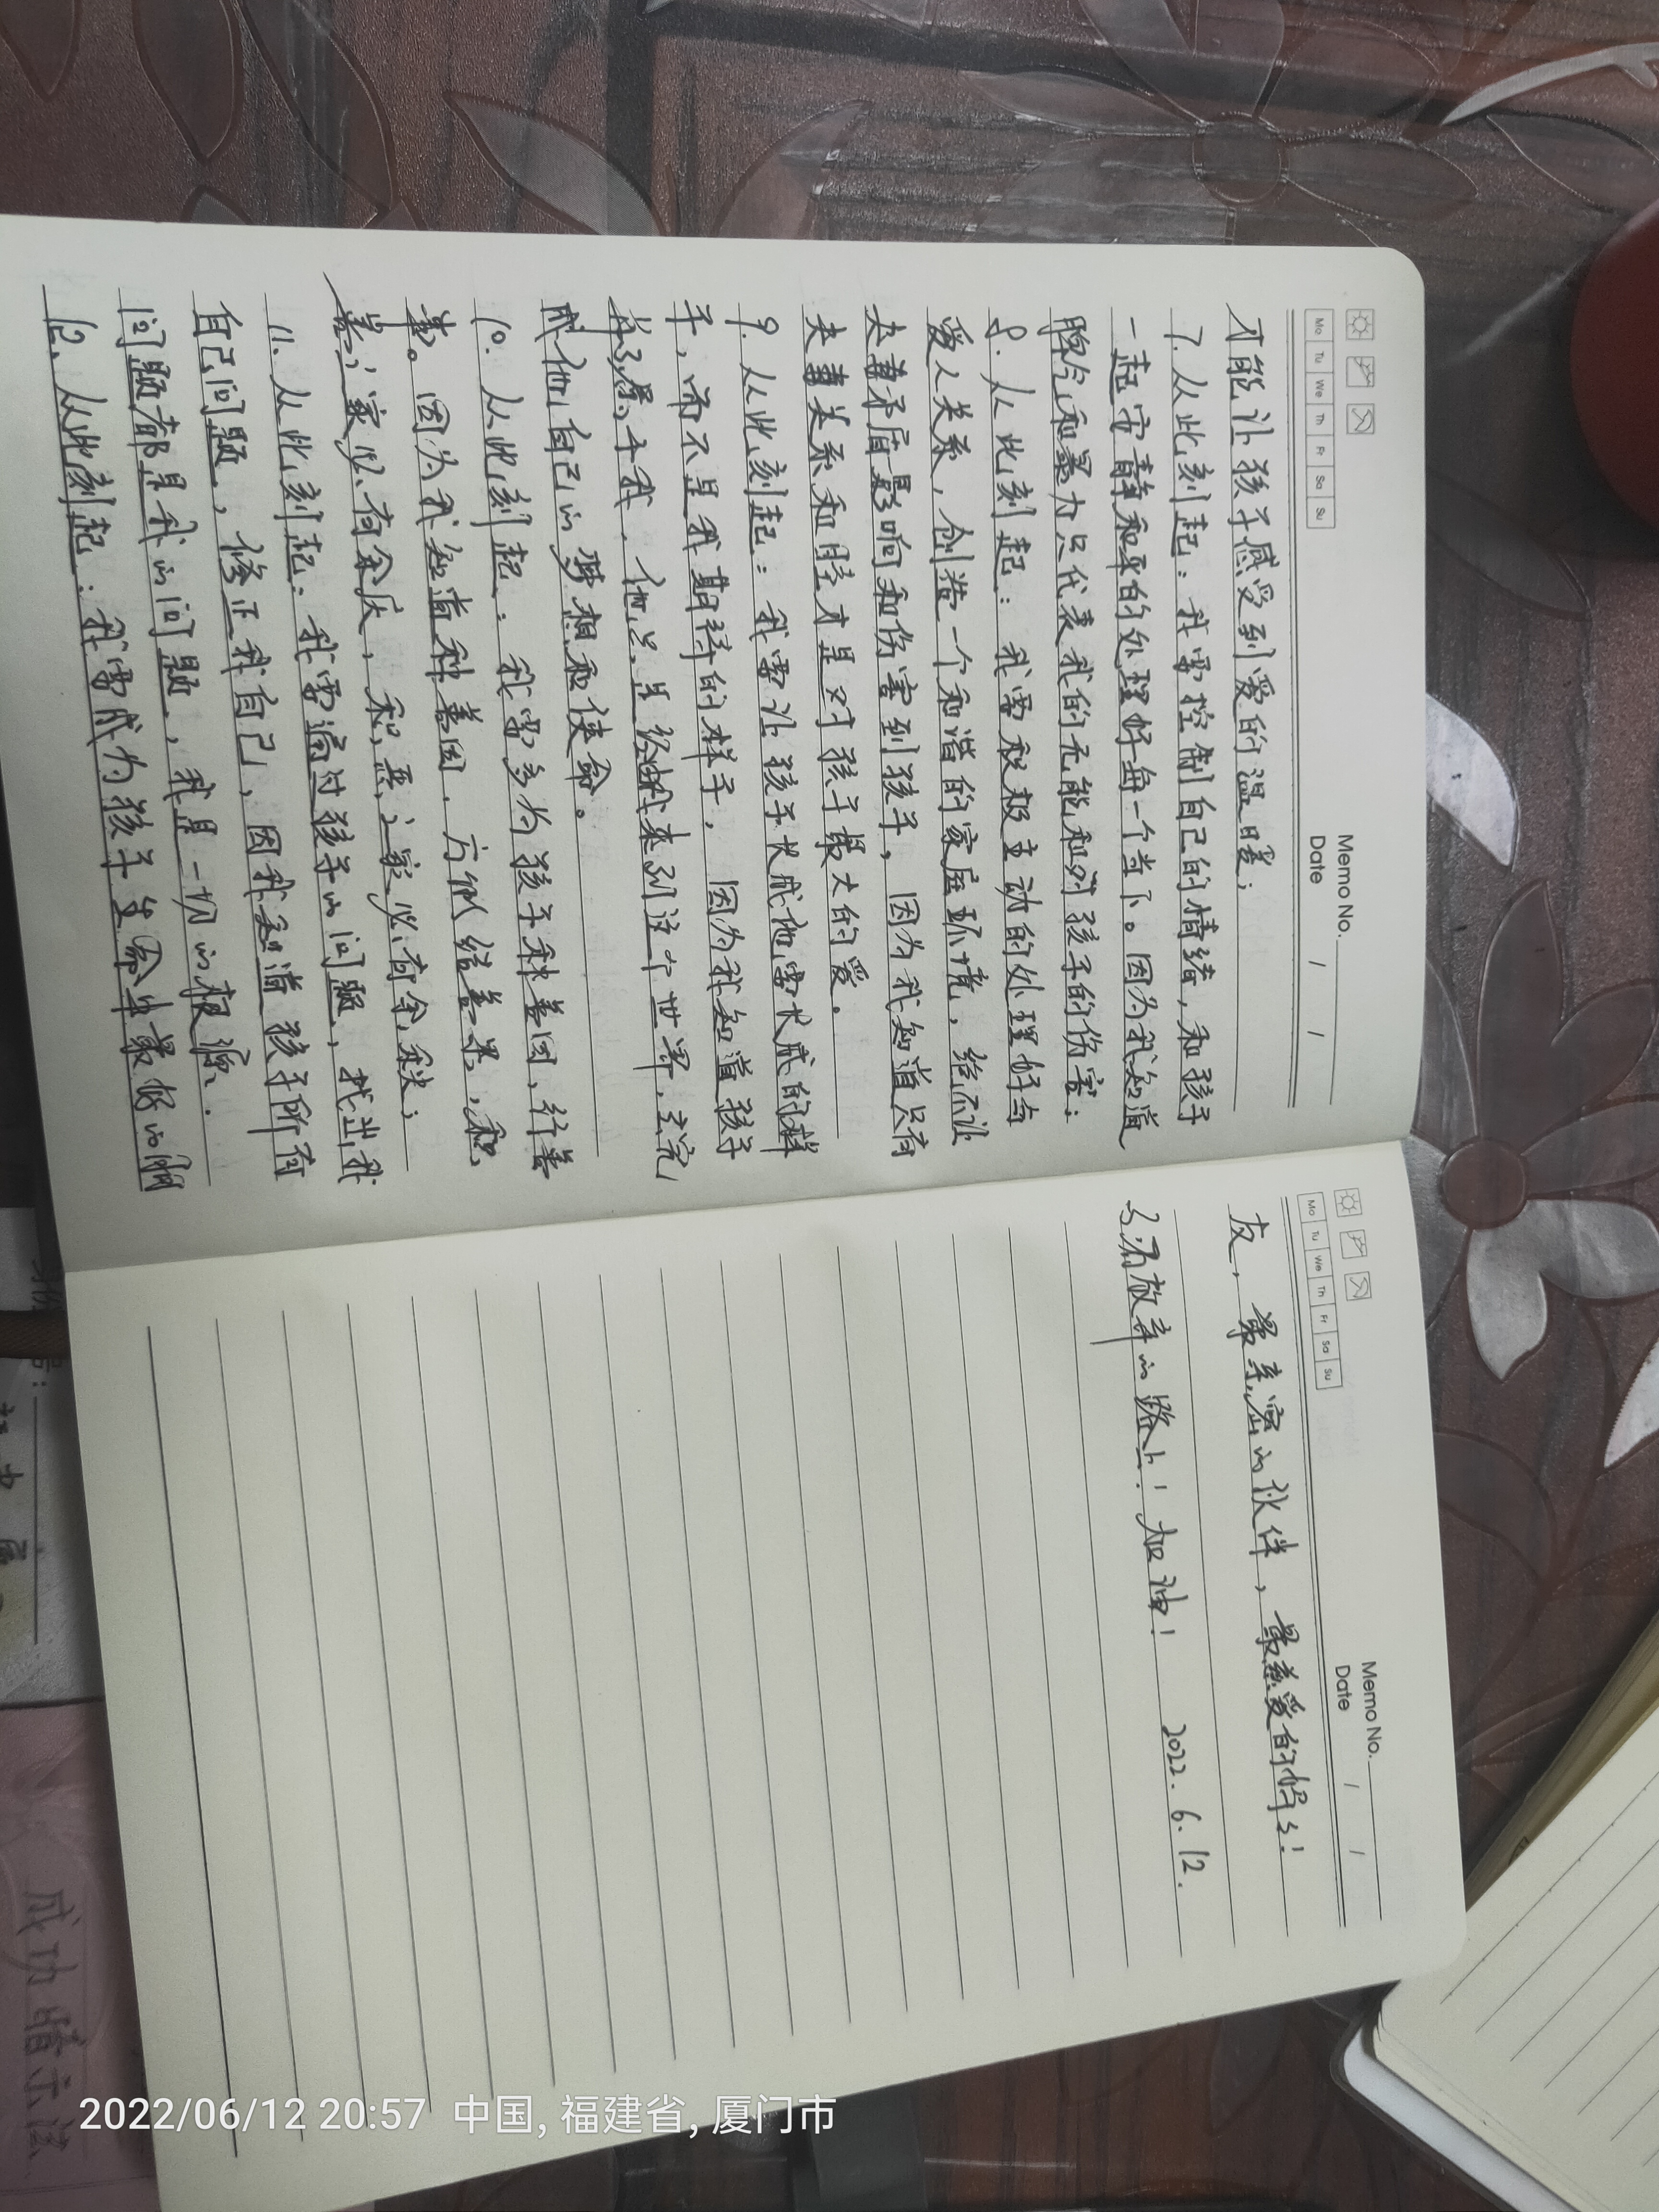 Memo No.
Mo Tu We Th Fr Sa Su
Date / /
才能让孩子感受到爱的温暖；
7. 从此刻起：我需控制自己的情绪，和孩子
一起安静和平的处理好每一个当下。因为我知道
指令和暴力只代表我的无能和对孩子的伤害；
8. 从此刻起：我需积极主动的处理好与
爱人关系，创造一个和谐的家庭环境，绝不让
夫妻矛盾影响和伤害到孩子，因为我知道只有
夫妻关系和睦才是对孩子最大的爱。
9. 从此刻起：我需让孩子长成他需长成的样
子，而不是我期待的样子，因为我知道孩子
并不属于我，他只是经由我来到这个世界，去完
成他自己的梦想和使命。
10. 从此刻起：我需多为孩子种善因，行善
事。因为我知道种善因，方能结善果，积
善之家必有余庆，积恶之家必有余殃；
11. 从此刻起：我需通过孩子的问题，找出我
自己问题，修正我自己，因我知道孩子所有
问题都是我的问题，我是一切的根源.
12. 从此刻起：我需成为孩子生命中最好的朋
Memo No.
Mo Tu We Th Fr Sa Su
Date / /
友，最亲密的伙伴，最慈爱的妈妈！
永不放弃的路上！加油！ 2022. 6. 12.
成功暗示法
2022/06/12 20:57 中国, 福建省, 厦门市